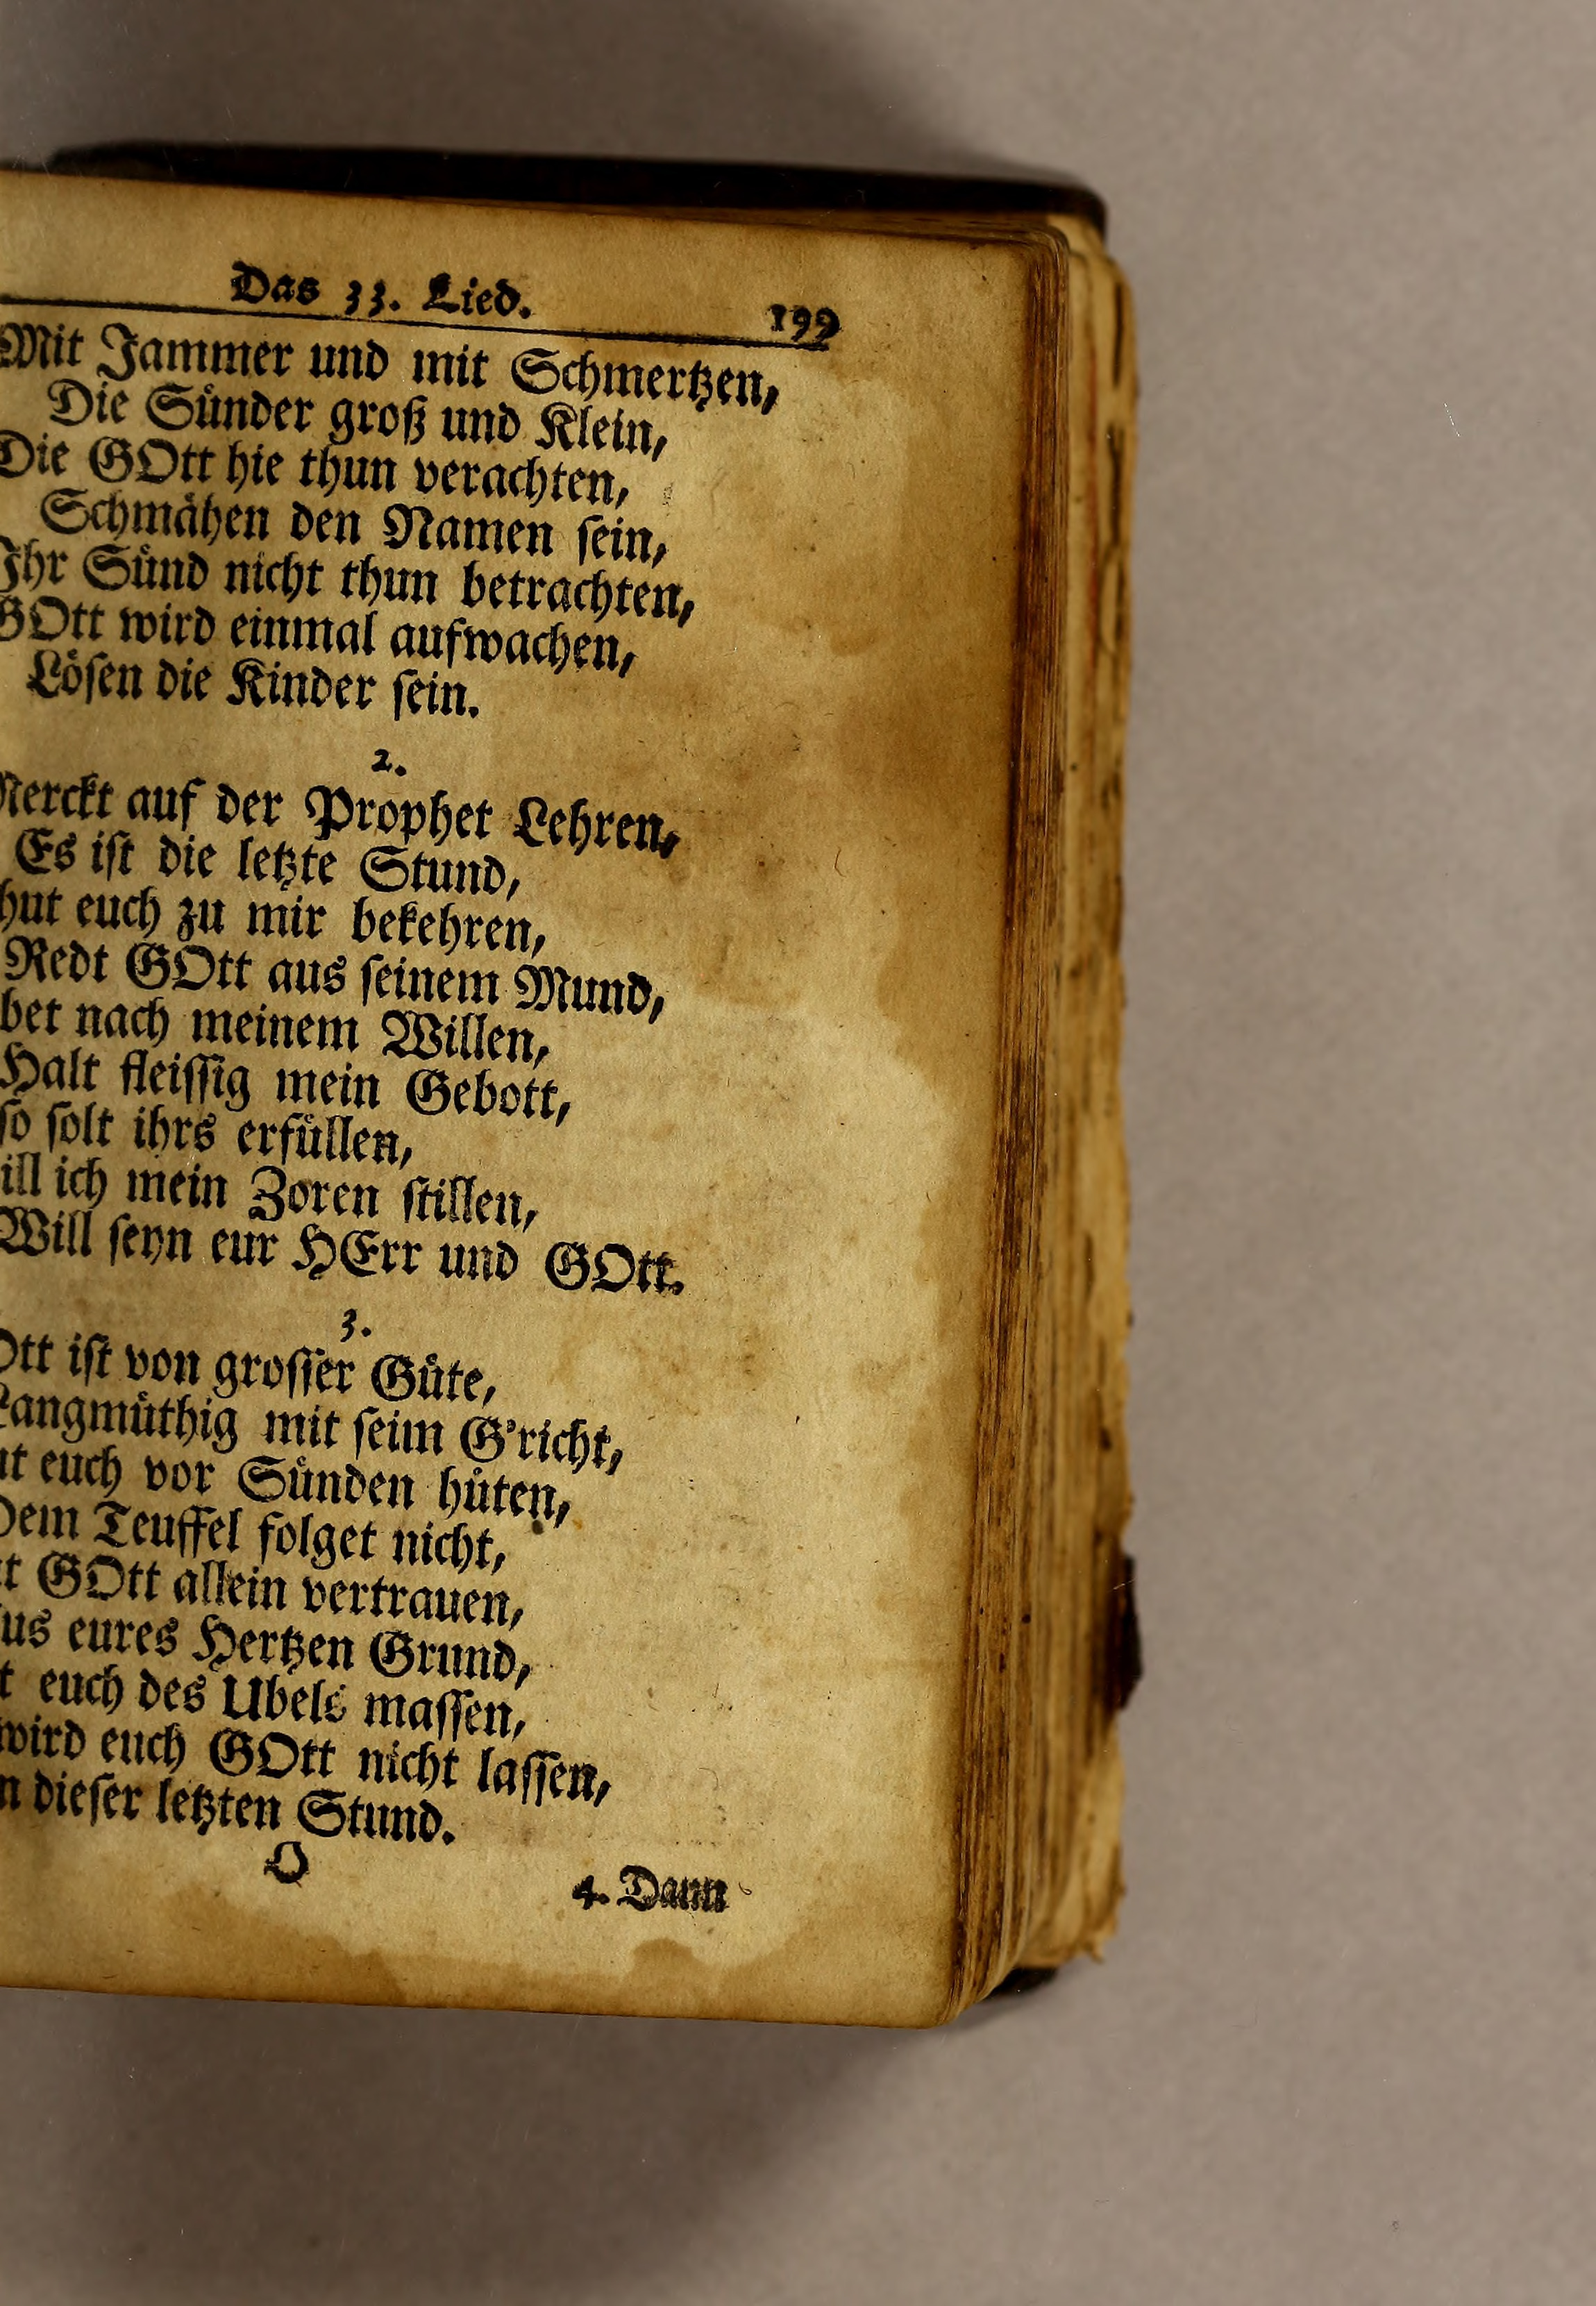 Das 33. Lied.
199
Mit Jammer und mit Schmertzen,
Die Sünder groß und Klein,
Die GOtt hie thun verachten,
Schmähen den Namen sein,
Ihr Sünd nicht thun betrachten,
GOtt wird einmal aufwachen,
Lösen die Kinder sein.
2.
Merckt auf der Prophet Lehren,
Es ist die letzte Stund,
hut euch zu mir bekehren,
Redt GOtt aus seinem Mund,
bet nach meinem Willen,
Halt fleissig mein Gebott,
so solt ihrs erfüllen,
ill ich mein Zoren stillen,
Will seyn eur HErr und GOtt.
3.
Ott ist von grosser Güte,
Langmüthig mit seim G'richt,
ut euch vor Sünden hüten,
Dem Teuffel folget nicht,
t GOtt allein vertrauen,
us eures Hertzen Grund,
t euch des Ubels massen,
wird euch GOtt nicht lassen,
n dieser letzten Stund.
O
4. Dann